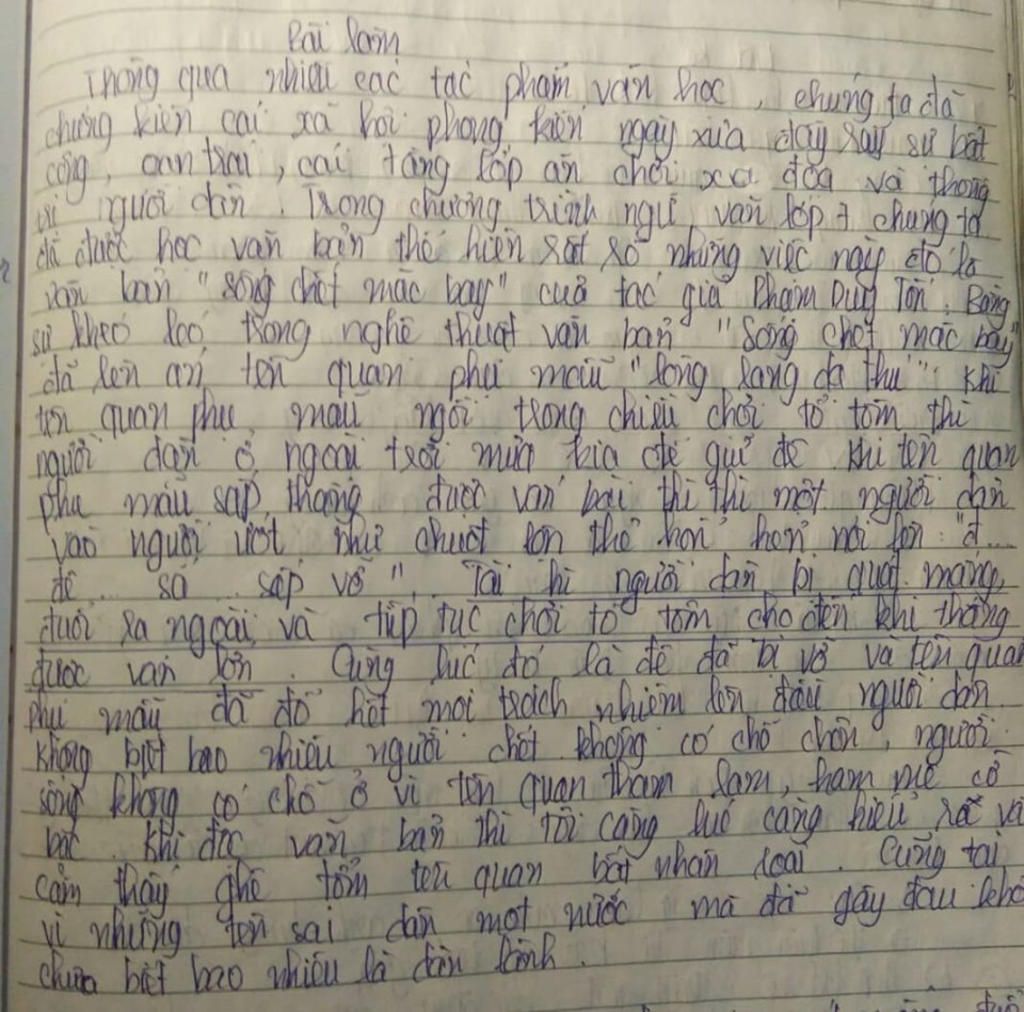 Bài làm
Thông qua nhiều các tác phẩm văn học, chúng ta đã
chứng kiến cái xã hội phong kiến ngày xưa đầy rẫy sự bất
công, oan trái, cái tầng lớp ăn chơi xa đọa và thống
trị người dân. Trong chương trình ngữ văn lớp 7 chúng ta
đã được học văn bản thể hiện rất rõ những việc này đó là
văn bản "sống chết mặc bay" của tác giả Phạm Duy Tốn. Bằng
sự khéo léo trong nghệ thuật văn bản "Sống chết mặc bay"
đã lên án tên quan phụ mẫu "lòng lang dạ thú". Khi
tên quan phụ mẫu ngồi trong chiếu chơi tổ tôm thì
người dân ở ngoài trời mưa kia để giữ đê. Khi tên quan
phụ mẫu sắp thắng được ván bài thì thì một người dân
vào người ướt như chuột lột thở hổn hển nói lớn: "đ...
đê... sạ.. sắp vỡ". Tài hì người dân bị quát mắng,
đuổi ra ngoài và tiếp tục chơi tổ tôm cho đến khi thắng
được ván lớn. Cùng lúc đó là đê đã bị vỡ và tên quan
phụ mẫu đã đổ hết mọi trách nhiệm lên đầu người dân.
Không biết bao nhiêu người chết không có chỗ chôn, người
sống không có chỗ ở vì tên quan tham lam, ham mê cờ
bạc. Khi đọc văn bản thì tôi càng lúc càng hiểu rõ và
cảm thấy ghê tởm tên quan bất nhân loại. Cũng tại
vì những tên sai dân một nước mà đã gây đau khổ
chưa biết bao nhiêu là dân lành.